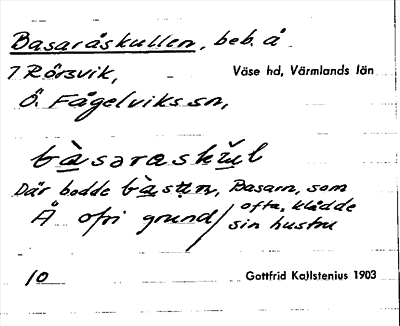 Basaråskullen, beb. å
7 Rörsvik, Väse hd, Värmlands län
Ö. Fågelviks sn,
bàsaraskŭl
Där bodde bàsun, Basarn, som
Å ofri grund / ofta klådde
sin hustru
10 Gottfrid Kallstenius 1903